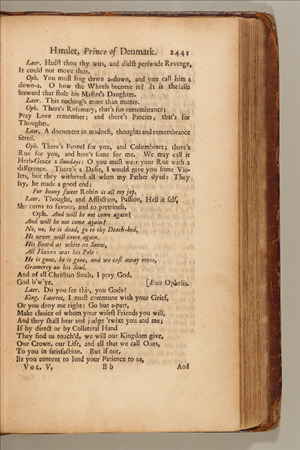 Hamlet, Prince of Denmark. 2441
Laer. Hadst thou thy wits, and didst perswade Revenge,
It could not move thus.
Oph. You must sing down a-down, and you call him a
down-a. O how the Wheels become it? It is the false
Steward that stole his Master's Daughter.
Laer. This nothing's more than matter.
Oph. There's Rosemary, that's for remembrance;
Pray Love remember; and there's Pancies, that's for
Thoughts.
Laer. A document in madness, thoughts and remembrance
fitted.
Oph. There's Fennel for you, and Columbines; there's
Rue for you, and here's some for me. We may call it
Herb-Grace a Sundays: O you must wear your Rue with a
difference. There's a Dasie, I would give you some Vio-
lets, but they withered all when my Father dyed: They
say, he made a good end;
For bonny sweet Robin is all my joy.
Laer. Thought, and Affliction, Passion, Hell it self,
She turns to favour, and to prettiness.
Oph. And will he not come again?
And will he not come again?
No, no, he is dead, go to thy Death-bed,
He never will come again.
His Beard as white as Snow,
All Flaxen was his Pole:
He is gone, he is gone, and we cast away mone,
Gramercy on his Soul.
And of all Christian Souls, I pray God.
God b'w'ye. [Exit Ophelia.
Laer. Do you see this, you Gods?
King. Laertes, I must commune with your Grief,
Or you deny me right: Go but a-part,
Make choice of whom your wisest Friends you will,
And they shall hear and judge 'twixt you and me;
If by direct or by Collateral Hand
They find us touch'd, we will our Kingdom give,
Our Crown, our Life, and all that we call Ours,
To you in satisfaction. But if not,
Be you content to lend your Patience to us,
VOL. V. B b And